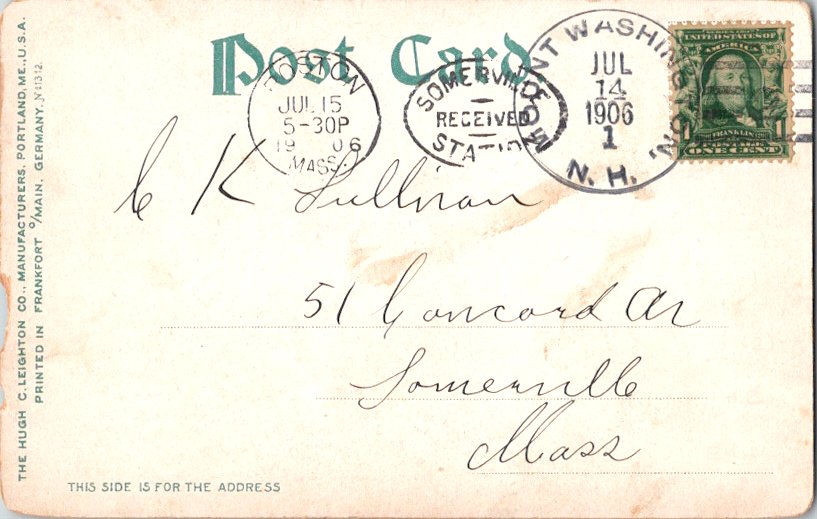 THE HUGH C. LEIGHTON CO., MANUFACTURERS, PORTLAND, ME., U.S.A.
PRINTED IN FRANKFORT o/MAIN, GERMANY. No 1312.
Post Card
BOSTON
JUL 15
5-30P
19 06
MASS.
SOMERVILLE
RECEIVED
STATIO
MOUNT WASHINGTON,
JUL
14
1906
1
N. H.
UNITED STATES OF
AMERICA
FRANKLIN
POSTAGE
1 1
ONE CENT
C K Sullivan
51 Concord Av
Somerville
Mass
THIS SIDE IS FOR THE ADDRESS